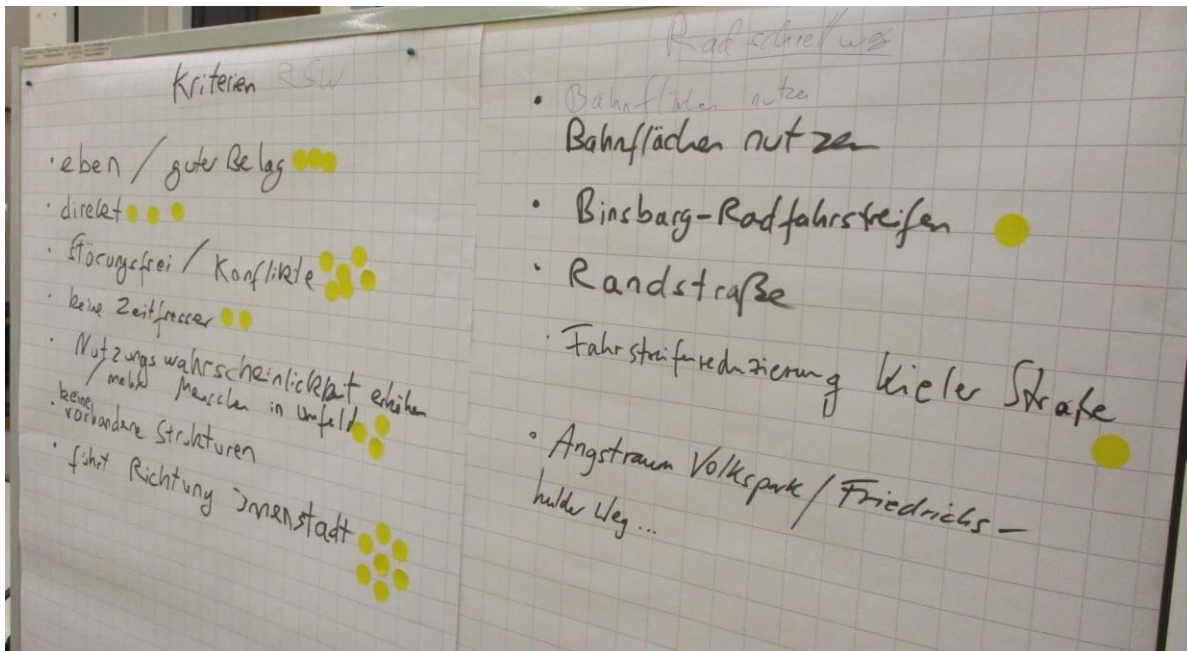 Kriterien RSW
· eben / guter Belag
· direkt
· Störungsfrei / Konflikte
· keine Zeitfresser
· Nutzungswahrscheinlichkeit erhöhen
/ mehr Menschen in Umfeld
· keine
vorhandene Strukturen
· führt Richtung Innenstadt
Radschnellweg
· Bahnflächen nutzen
Bahnflächen nutzen
· Binsbarg-Radfahrstreifen
· Randstraße
· Fahrstreifenreduzierung Kieler Straße
· Angstraum Volkspark / Friedrichs-
hulder Weg...